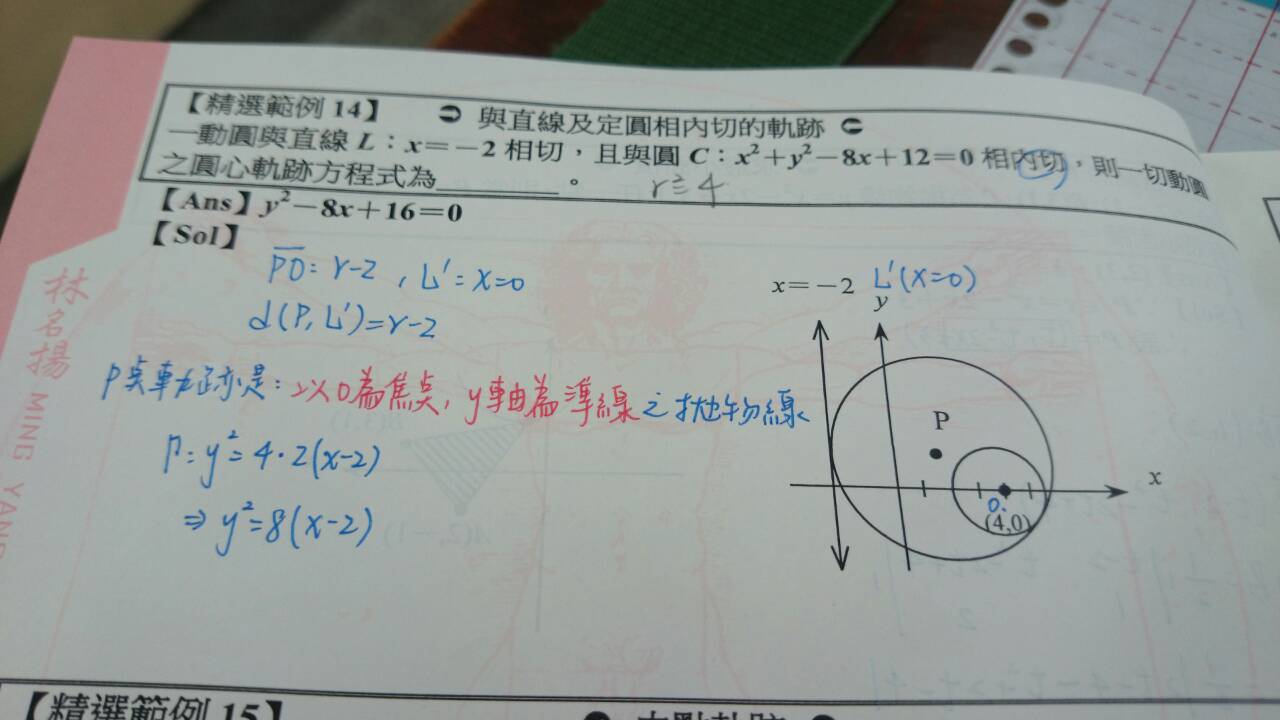 【精選範例 14】 ➲ 與直線及定圓相內切的軌跡
一動圓與直線 L：x＝－2 相切，且與圓 C：x²＋y²－8x＋12＝0 相內切，則一切動圓
之圓心軌跡方程式為________。 r≥4
【Ans】y²－8x＋16＝0
【Sol】
PO = r-2 , L': x=0
d(P, L')=r-2
P點軌跡是: 以O為焦點, y軸為準線之拋物線
Γ: y²=4·2(x-2)
⇒ y²=8(x-2)
x＝－2 L'(x=0)
y
P
x
O
(4,0)
林名揚 MING YANG
A(2,－1)
【精選範例 15】